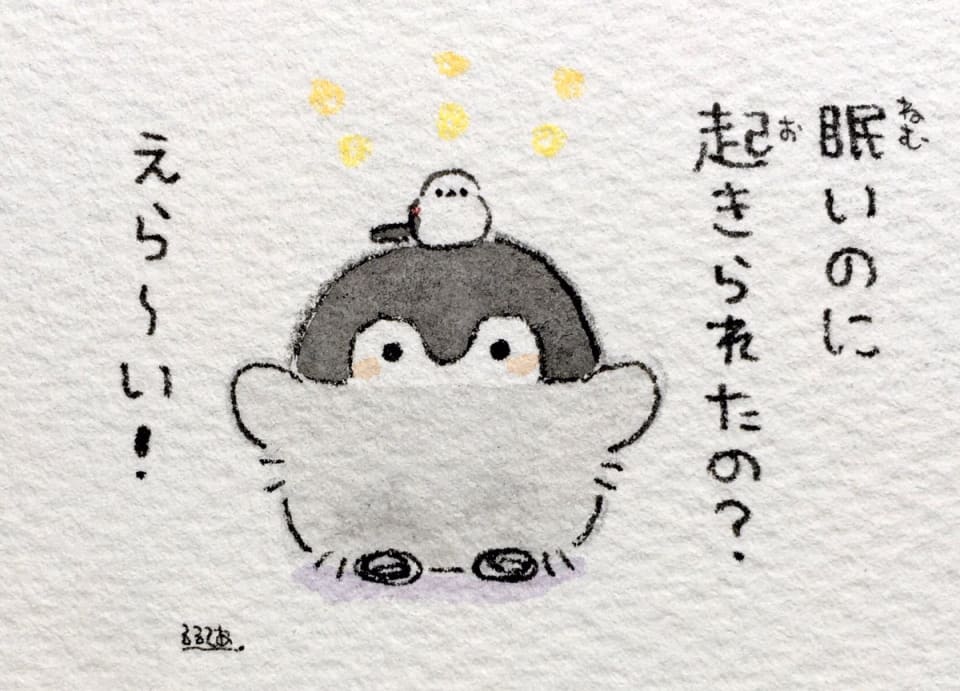 眠いのに
起きられたの?
えら〜い!
るるてあ.